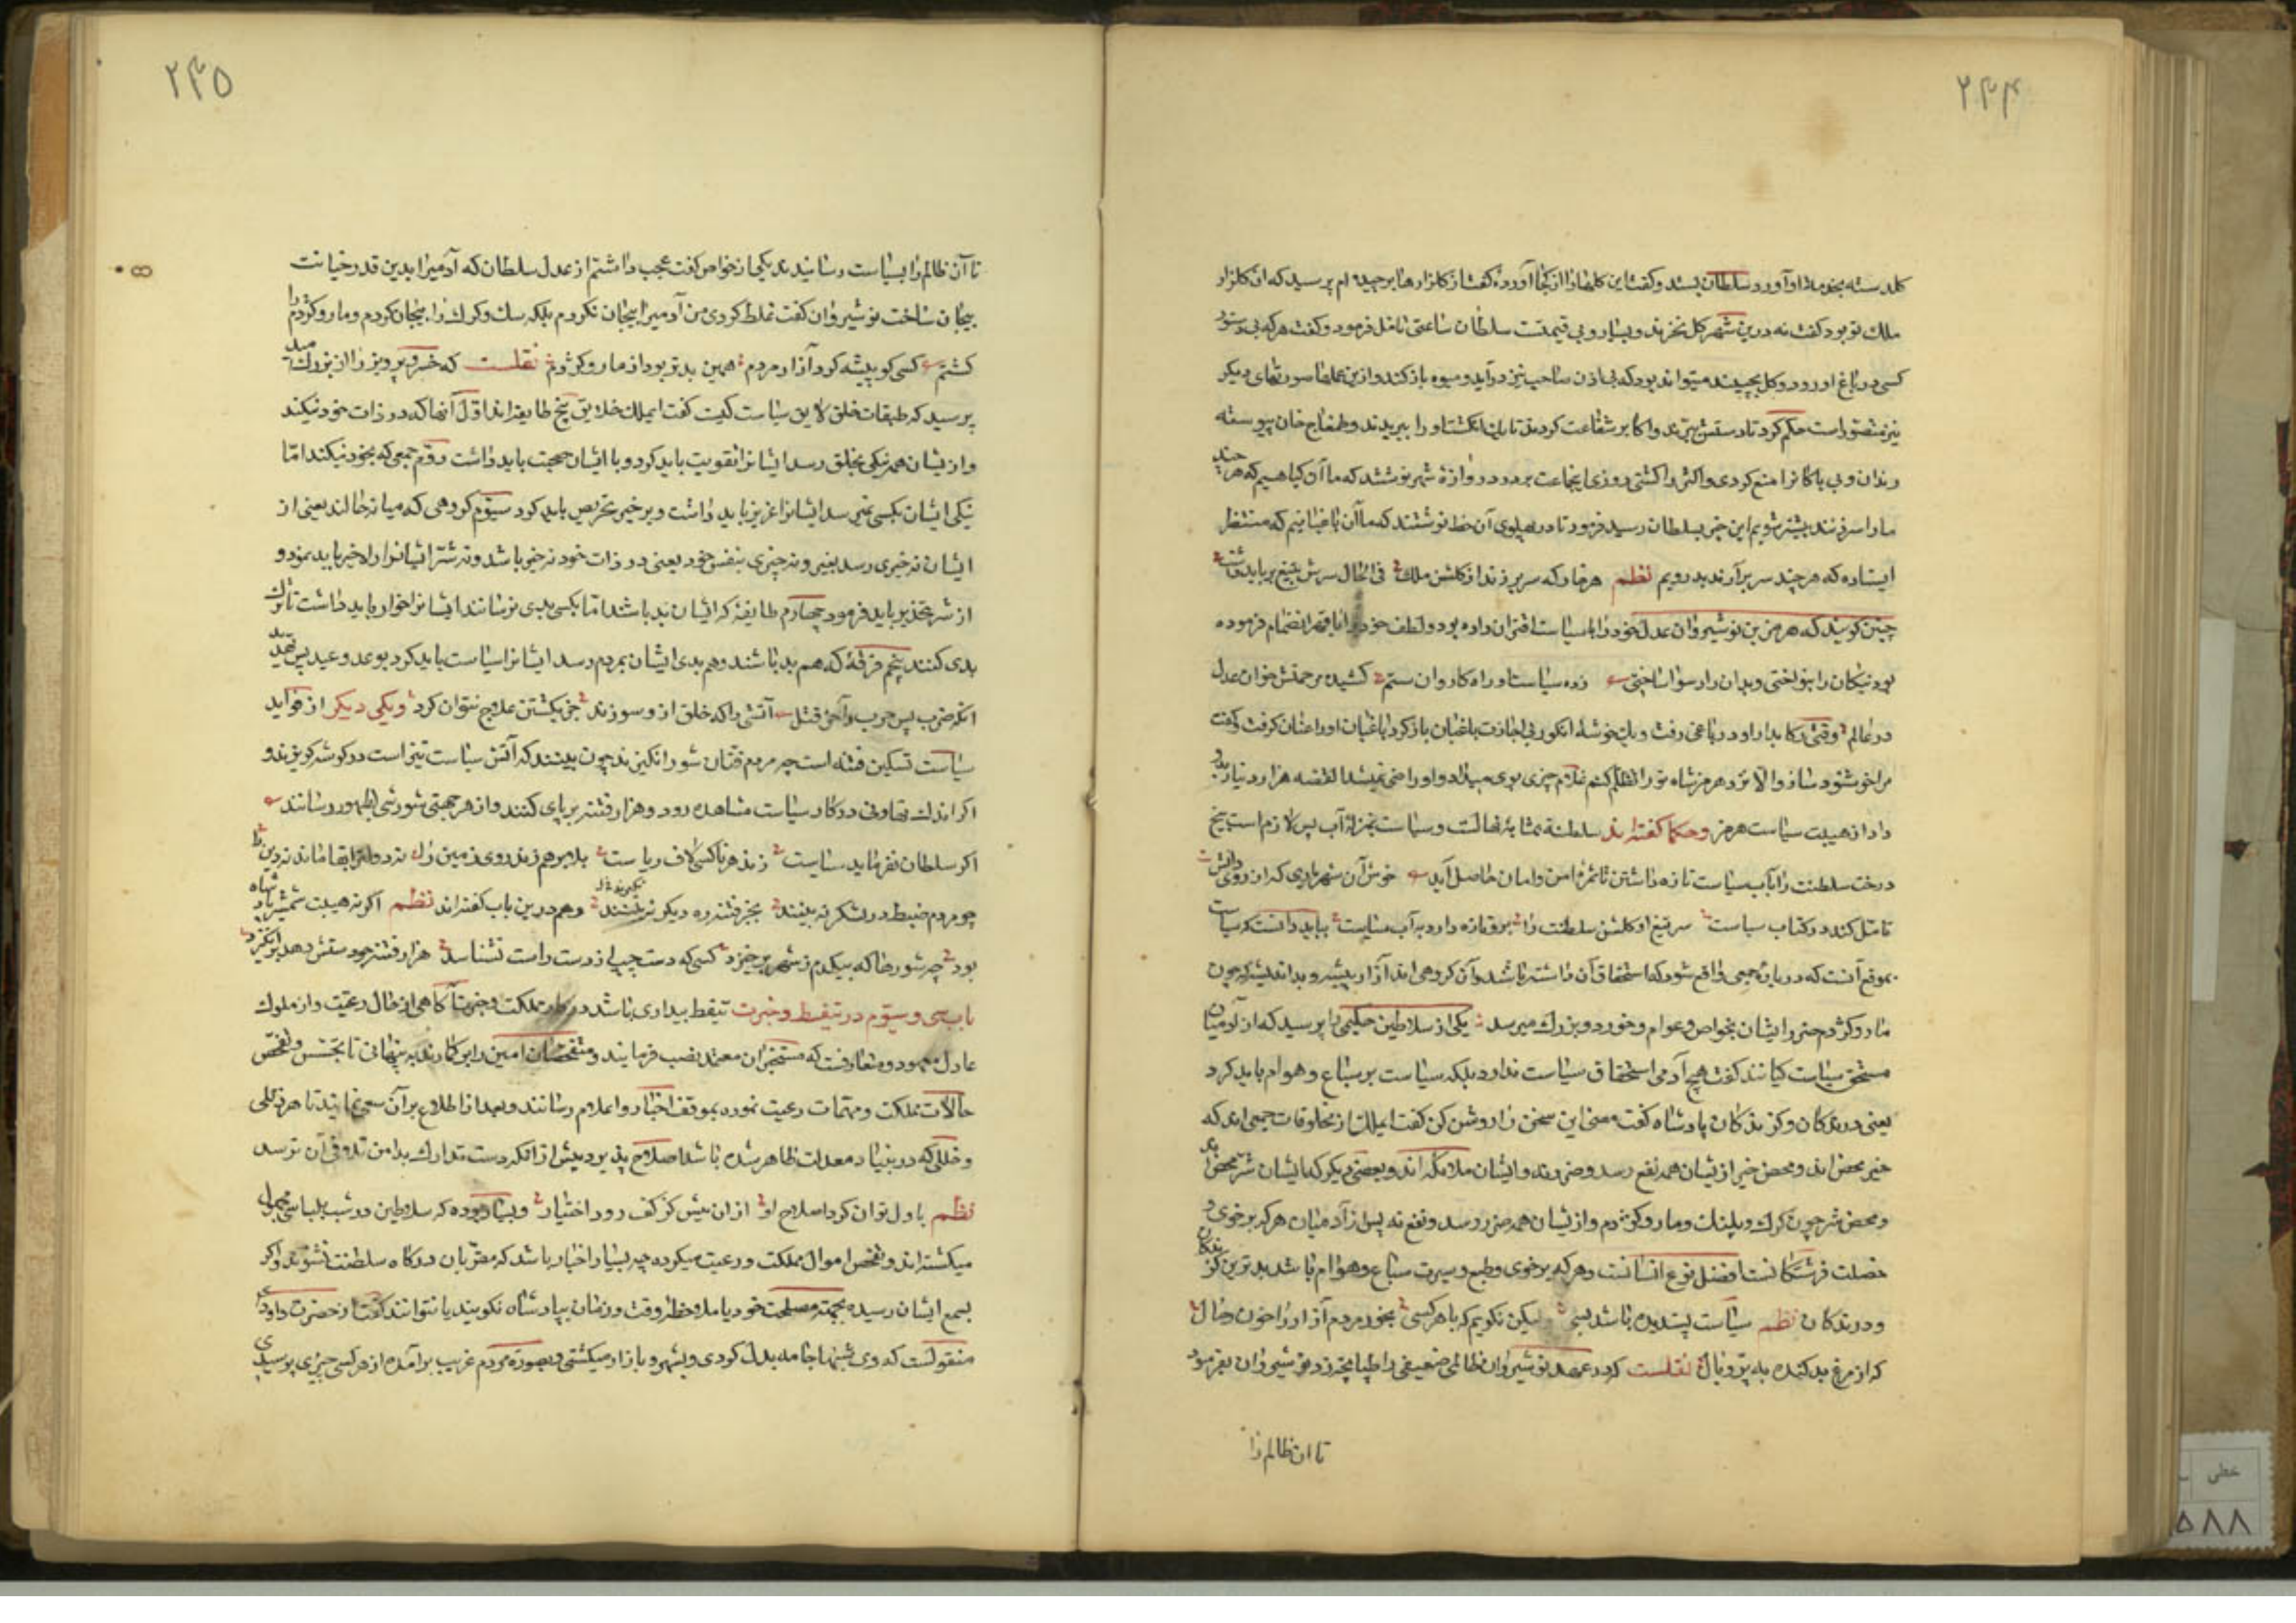 ۲۴۴
کلدسته بخدمة او آورد سلطان بستد و کفت این کلها را از کجا آورده کفت از کلزارها برچیده ام پرسید که ان کلزار
ملک تو بود کفت نه درین شهر کل نخرند و بسیار و بی قیمتست سلطان ساعتی تامل فرمود و کفت هر که بی دستور
کسی در باغ او رود و کل بچیند میتواند بود که بی اذن صاحب نیز درآید و میوه باز کند و ازین عملها صورتهای دیکر
نیز متصور است حکم کرد تا دستش ببرند و اکابر شفاعت کردند تا یک انکشت او را ببریدند و طمغاج خان پیوسته
رندان و بی باکانرا منع کردی و اکثر را کشتی روزی اینجماعت بر در دروازۀ شهر نوشتند که ما آن کیاهیم که هر چند
ما را سر زنند بیشتر شویم این خبر بسلطان رسید فرمود تا در پهلوی آن خط نوشتند که ما آن باغبانیم که منتظر
ایستاده که هر چند سر برآرند بدرویم نظم هر خار که سر برزند از کلشن ملک فی الحال سرش بتیغ بر باید داشت
چنین کویند که هرمز بن نوشیروان عدل خود را با سیاست اقتران داده بود و لطف خود را با قهر انضمام فرموده
بود نیکان را بنواختی و بدان را رسوا ساختی زده سیاست او راه کاروان ستم کشیده مرحمتش خوان عدل
در عالم وقتی رکابدار او در باغی رفت و یک خوشۀ انکور بی اجازت باغبان باز کرد باغبان او را عنان کرفت و کفت
مرا خوشنود ساز و الا نزد هرمز شاه تو را تظلم کنم غلام چیزی بوی میداد و او راضی نمیشد القصه هزار دینار بدو
داد از هیبت سیاست هرمز و حکما کفته اند سلطنة بمثابۀ نهالست و سیاست بمنزلۀ آب پس لازم است بیخ
درخت سلطنت را بآب سیاست تازه داشتن تا ثمرۀ امن و امان حاصل آید خوش آن شهریاری که از روی دانش
تامل کند در کتاب سیاست سر تیغ او کلشن سلطنت را تر و تازه دارد به آب سیاست بباید دانست که سیاست
بموقع آنست که در بارۀ جمعی واقع شود که استحقاق آن داشته باشند و آن کروهی اند آزار پیشه و بد اندیشه که چون
مار و کژدم ضرر ایشان بخواص و عوام و خورد و بزرک میرسد یکی از سلاطین حکیمی را پرسید که از آدمیان
مستحق سیاست کیانند کفت هیچ آدمی استحقاق سیاست ندارد بلکه سیاست بر سباع و هوام باید کرد
یعنی درندکان و کزندکان پادشاه کفت معنی این سخن را روشن کن کفت ایملک از مخلوقات جمعی اند که
خیر محض اند و محض خیر از یشان همه نفع رسد و ضرر نه و ایشان ملائکه اند و بعضی دیکر که ایشان شر محض اند
و محض شر چون کرک و پلنک و مار و کژدم و از یشان همه ضرر رسد و نفع نه پس از آدمیان هر که بر خوی و
خصلت فرشتکانست افضل نوع انسانست و هر که بر خوی و طبع و سیرت سباع و هوام باشد بدترین کزندکان
و درندکان نظم سیاست پسندیده باشد بسی و لیکن نکویم که با هر کسی بخور مردم آزار را خون و مال
که از مرغ بد کنده به پر و بال نقلست که در عهد نوشیروان ظالمی ضعیفی را طپانچه زد نوشیروان بفرمود
تا ان ظالم را
۲۴۵
تا آن ظالم را بسیاست رسانیدند یکی از خواص کفت عجب داشتم از عدل سلطان که آدمیرا بدین قدر خیانت
بیجان ساخت نوشیروان کفت غلط کردی من آدمیرا بیجان نکردم بلکه سک و کرک را بیجان کردم و مار و کژدم را
کشتم کسی کو پیشه کرد آزار مردم همین بدتر بود از مار و کژدم نقلست که خسرو پرویز را از بزرک مید
پرسید که طبقات خلق لایق سیاست کیست کفت ایملک خلایق پنج طایفه اند اول آنها که در ذات خود نیکند
و از یشان همه نیکی بخلق رسد ایشانرا تقویت باید کرد و با ایشان صحبت باید داشت دوم جمعی که بخود نیکند اما
نیکی ایشان بکسی نمیرسد ایشانرا عزیز باید داشت و بر خیر تحریص باید کرد سیوم کروهی که میانه حالند یعنی از
ایشان نه خیری رسد بغیر و نه چیزی بنفس خود یعنی در ذات خود نه خیر باشد و نه شر ایشانرا راه خیر باید نمود و
از شر تحذیر باید فرمود چهارم طایفۀ که ایشان بد باشند اما بکسی بدی نرسانند ایشانرا خوار باید داشت تا ترک
بدی کنند پنجم فرقۀ که هم بد باشند و هم بدی ایشان بمردم رسد ایشانرا سیاست باید کرد بوعد و وعید پس تهدید
انکه ضرب پس حرب و آخر قتل آتشی را که خلق ازو سوزند جز بکشتن علاج نتوان کرد و یکی دیکر از فواید
سیاست تسکین فتنه است چه مردم فتان شور انکیزند چون ببینند که آتش سیاست تیز است در کوشه کریزند و
اکر اندک تهاونی در کار سیاست مشاهده رود و هزار فتنه برپای کنند و از هر جهتی شورشی بظهور رسانند
اکر سلطان نفرماید سیاست زند هر ناکسی لاف ریاست بلا بر هم زند روی زمین را نه دولترا بقا ماند نه دین را
چو مردم ضبط در لشکر نه بینند بجز فتنه ره دیکر نکزینند و هم درین باب کفته اند نظم اکر نه هیبت شمشیر شاه
بود چه شورها که بیکدم ز شهر برخیزد کسی که دست چپ از دست راست نشناسد هزار فتنه چو دستش دهد برانکیزد
باب سی و سیوم در تیقظ و خبرت تیقظ بیداری باشد در کار مملکت و خبرت آکاهی از حال رعیت و از ملوک
عادل معهود و متعارفست که مستخبران معتمد نصب فرمایند و متفحصان امین را برکارند به پنهانی تا تجسس و تفحص
حالات مملکت و مهمات رعیت نموده بموقف اخبار و اعلام رسانند و بعد از اطلاع بر آن سعی نمایند تا هر خللی
و خللی که در بنیاد معدلت ظاهر شده باشد اصلاح پذیرد پیش از انکه دست تدارک بدامن تلافی آن نرسد
نظم باول توان کرد اصلاح او از ان پیش کز کف رود اختیار و بسیار بوده که سلاطین در شب بلباس مجهول
میکشته اند و تفحص احوال مملکت و رعیت میکرده چه بسیار اخبار باشد که مقربان درکاه سلطنت نشنوند و اکر
بسمع ایشان رسیده بجهة مصلحت خود یا ملاحظۀ وقت و زمان بپادشاه نکویند یا نتوانند کفت از حضرت داود
منقولست که وی شبها جامه بدل کردی و بشهر و بازار میکشتی و بصورة مردم غریب برآمده از هر کسی چیزی پرسیدی
خطی
۵۸۸